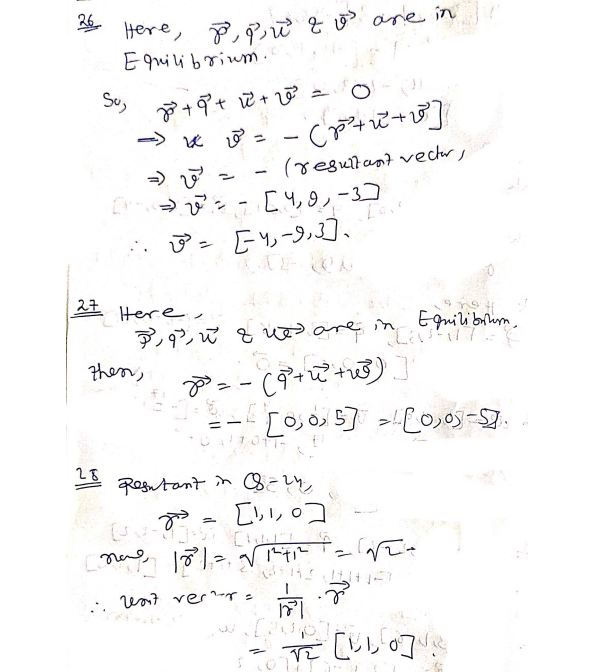 26 Here, p⃗, q⃗, u⃗ & v⃗ are in
Equilibrium.
So, p⃗ + q⃗ + u⃗ + v⃗ = 0
⇒ v⃗ = - (p⃗ + u⃗ + v⃗]
⇒ v⃗ = - (resultant vector,
⇒ v⃗ = - [4, 9, -3]
∴ v⃗ = [-4, -9, 3].
27 Here,
p⃗, q⃗, u⃗ & are in Equilibrium.
then, p⃗ = - (q⃗ + u⃗ + w⃗)
= - [0, 0, 5] = [0, 0, -5].
28 Resutant in Q-24,
r⃗ = [1, 1, 0]
now, |r⃗| = √1²+1² = √2
∴ unit vector = 1/|r⃗| · r⃗
= 1/√2 [1, 1, 0].